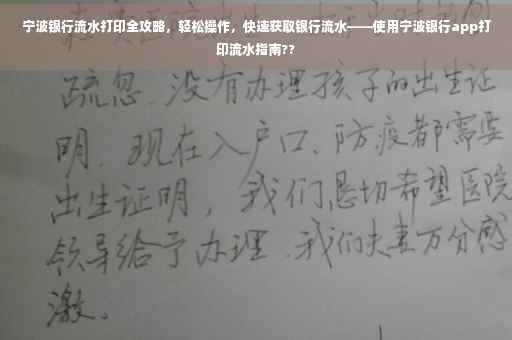 宁波银行流水打印全攻略，轻松操作，快速获取银行流水——使用宁波银行app打
印流水指南??
疏忽、没有办理孩子的出生证
明．现在入户口、防疫都需要
出生证明，我们恳切希望医院
领导给予办理．我们夫妻万分感
激。